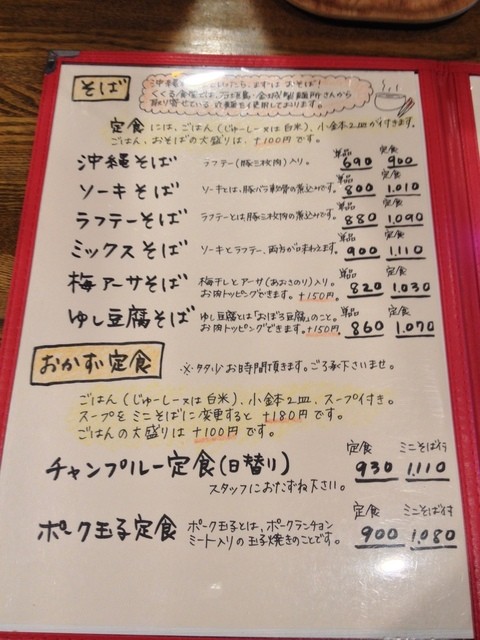 そば
沖縄といったら、まずはおそば!
くくる食堂では、石垣島・金城製麺所さんから
取り寄せている沖縄麺を使用しております。
定食には、ごはん(じゅーしー又は白米)、小鉢2皿が付きます。
ごはん、おそばの大盛りは、+100円です。
単品 定食
沖縄そば ラフテー(豚三枚肉)入り。 690 900
単品 定食
ソーキそば ソーキとは、豚バラ軟骨の煮込みです。 800 1.010
単品 定食
ラフテーそば ラフテーとは豚三枚肉の煮込みです。 880 1.090
単品 定食
ミックスそば ソーキとラフテー、両方が味わえます。 900 1.110
単品 定食
梅アーサそば 梅干しとアーサ(あおさのり)入り。 820 1.030
お肉トッピングできます。+150円。
単品 定食
ゆし豆腐そば ゆし豆腐とは「おぼろ豆腐」のこと。 860 1.070
お肉トッピングできます。+150円。
おかず定食 ※少々お時間頂きます。ご了承下さいませ。
ごはん(じゅーしー又は白米)、小鉢2皿、スープ付き。
スープをミニそばに変更すると+180円です。
ごはんの大盛りは+100円です。
定食 ミニそば付
チャンプルー定食(日替り) 930 1.110
スタッフにおたずね下さい。
定食 ミニそば付
ポーク玉子定食 ポーク玉子とは、ポークランチョン 900 1.080
ミート入りの玉子焼きのことです。